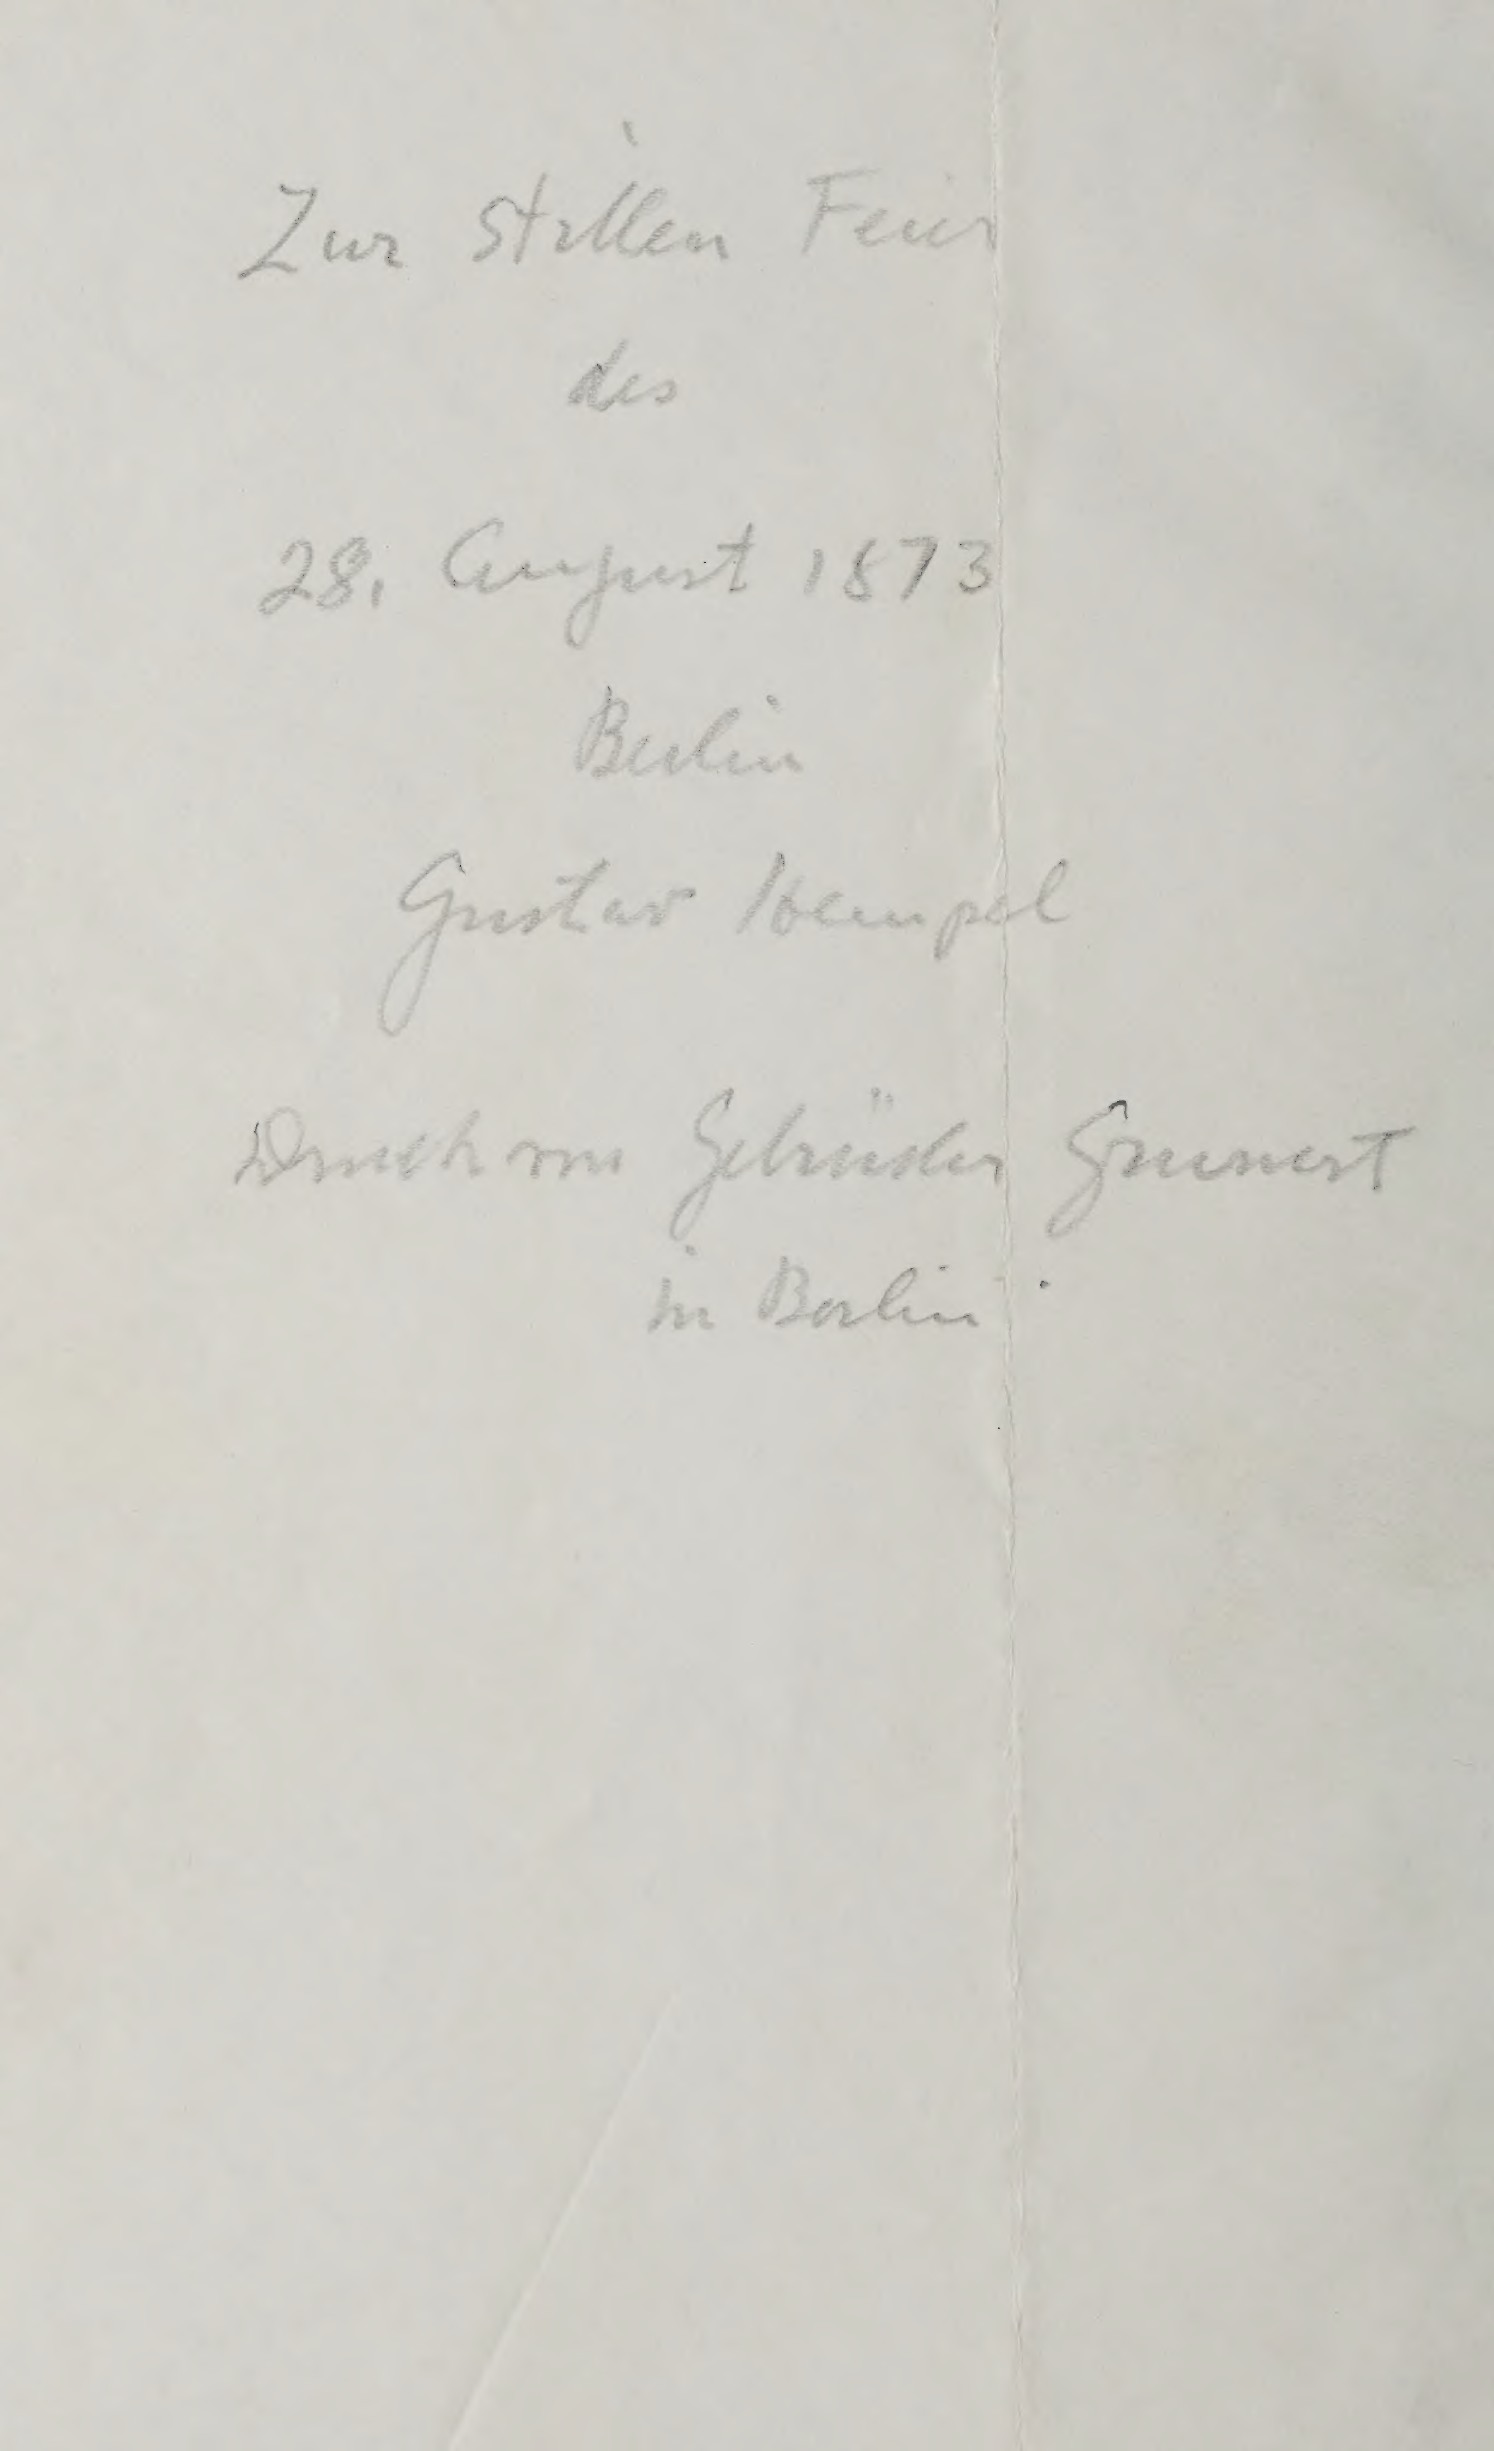 Zur stillen Feier
des
28. August 1873
Berlin
Gustav Hempel
Druck von Gebrüder Grunert
in Berlin